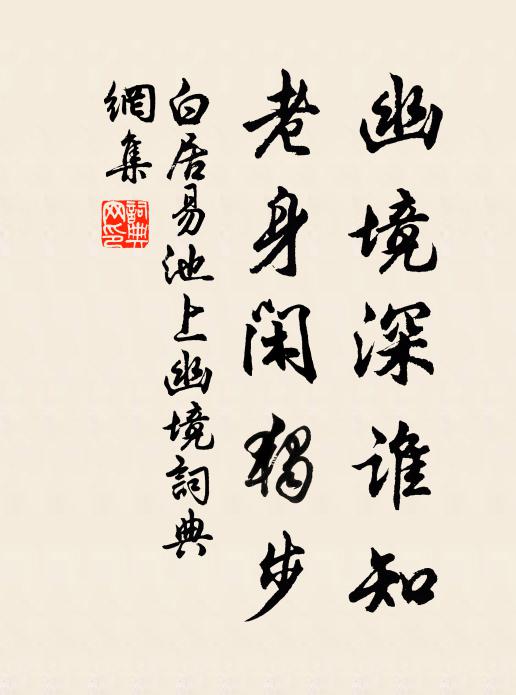 幽境深誰知
老身閑獨步
白居易池上幽境詞典
網集
詞典
网印